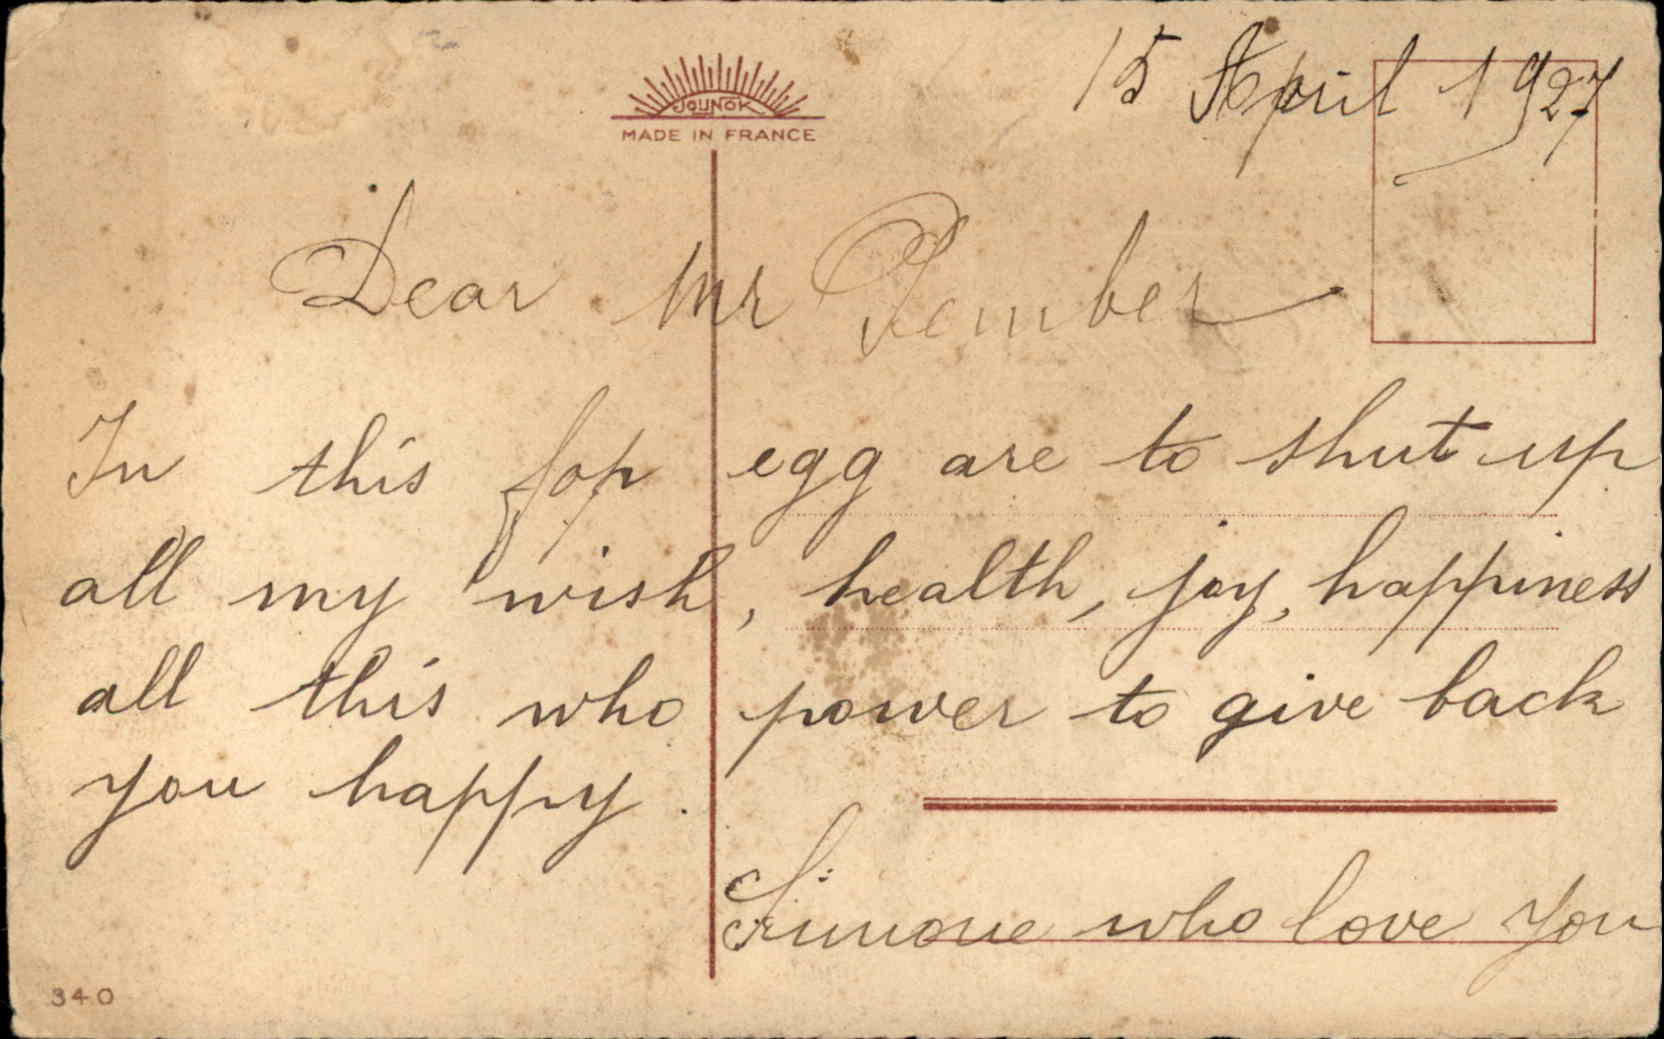 JOUNOK
MADE IN FRANCE
15 April 1927
Dear Mr Pember
In this fop egg are to shut up
all my wish, health, joy, happiness
all this who power to give back
you happy.
Simone who love you
340